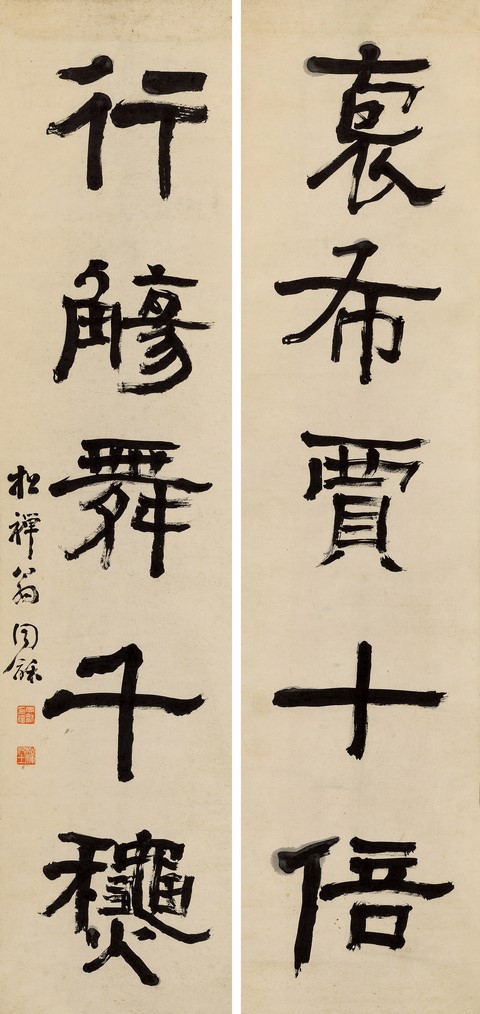 袌希賈十倍
行觴舞千𪛁
松禪翁同龢